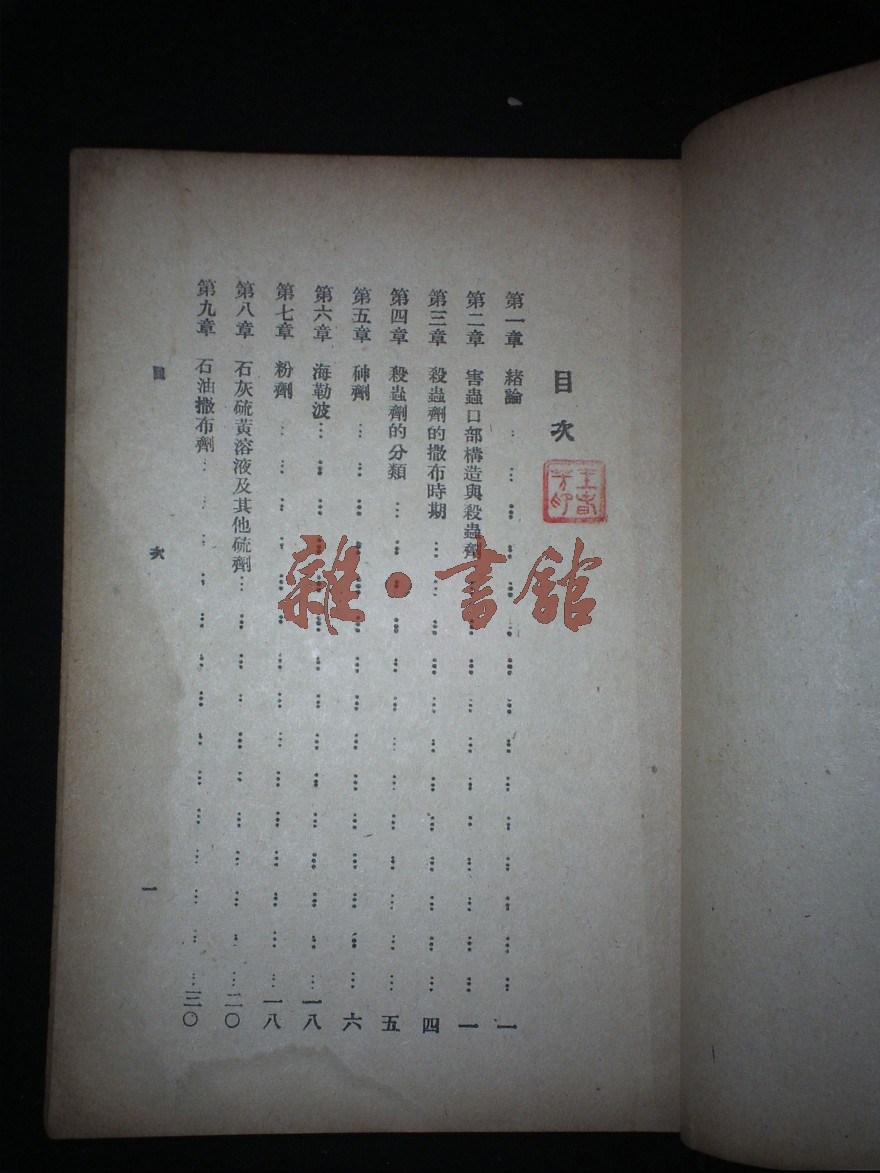 目次
第一章　緒論……一
第二章　害蟲口部構造與殺蟲劑……一
第三章　殺蟲劑的撒布時期……四
第四章　殺蟲劑的分類……五
第五章　砷劑……六
第六章　海勒波……一八
第七章　粉劑……一八
第八章　石灰硫黃溶液及其他硫劑……二〇
第九章　石油撒布劑……三〇
目　次　一
雜·書館